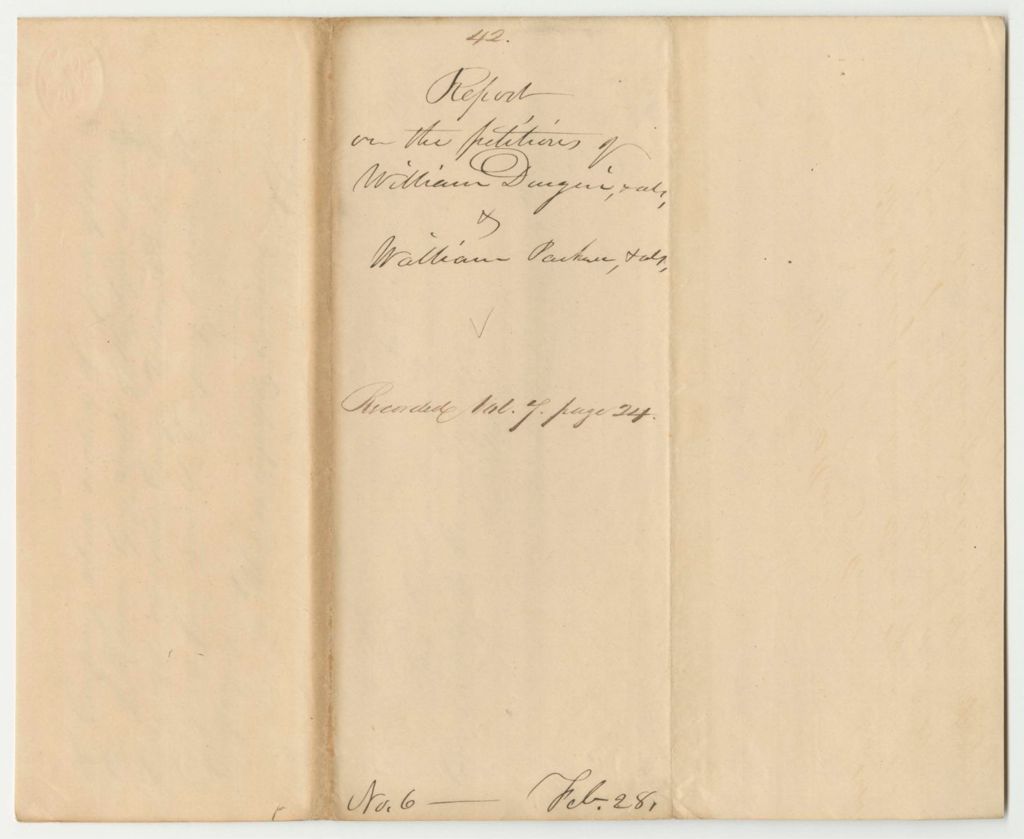 42.
Report
on the petitions of
William Durgin, & als,
&
William Parker, & als,
Recorded Vol. 7. page 24.
No. 6 — Feb. 28,